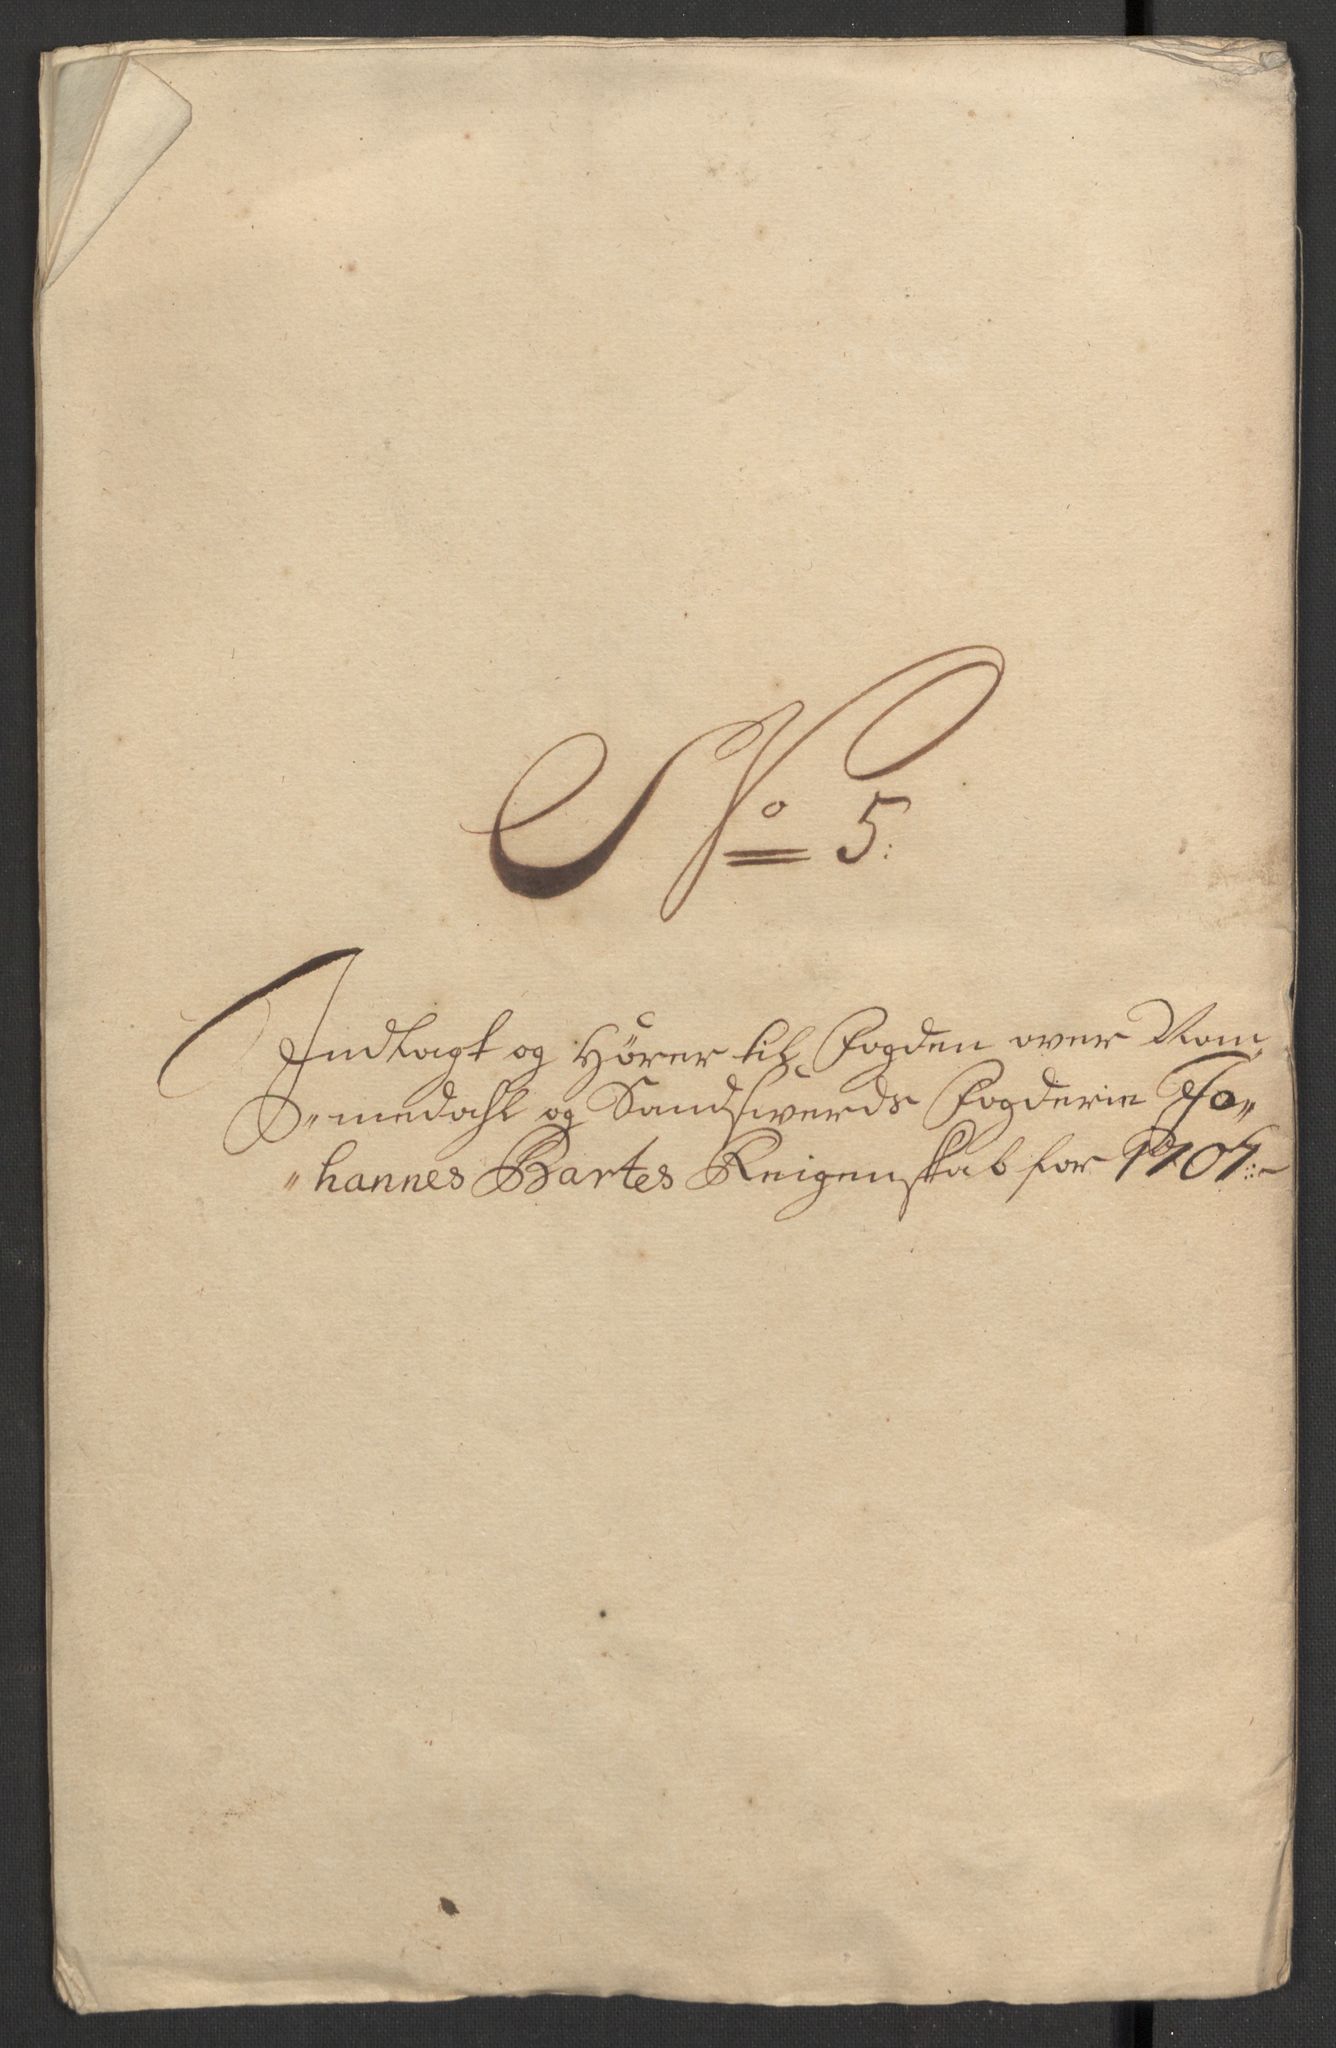 No 5:
Indlagt og Hører til Fogden over Num
"medahl og Sandswerds Fogderie Jo"
"hannes Bartes Reigenskab for 1707: